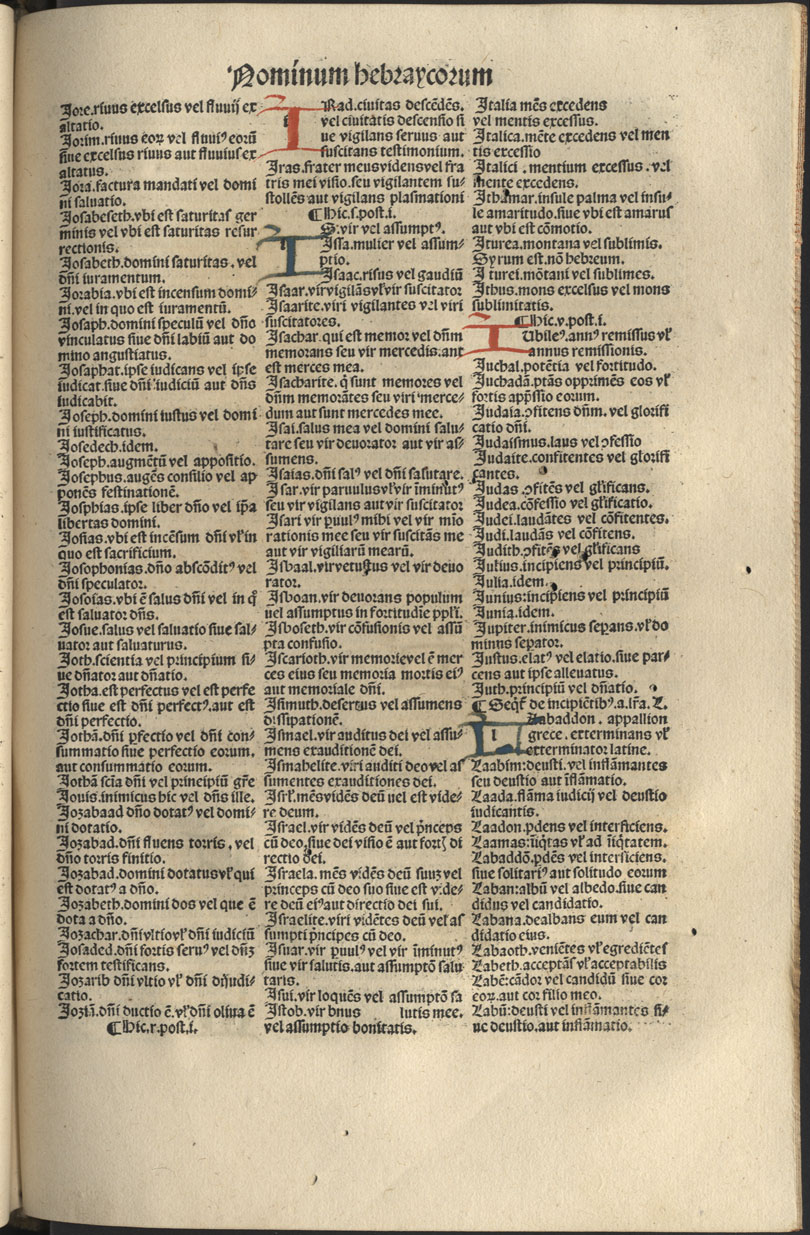 Nominum hebraycorum
Jore.riuus excelsus vel fluuij ex
altatio.
Jorim.riuus eoꝝ vel fluuiꝰ eorū
siue excelsus riuus aut fluuius ex
altatus.
Jora.factura mandati vel domi
ni saluatio.
Josabeseth.vbi est saturitas ger
minis vel vbi est saturitas resur
rectionis.
Josabeth.domini saturitas.vel
dñi iuramentum.
Jorabia.vbi est incensum domi⸗
ni.vel in quo est iuramentū.
Josaph.domini speculū vel dño
vinculatus siue dñi labiū aut do
mino angustiatus.
Josaphat.ipse iudicans vel ipse
iudicat siue dñi iudiciū aut dñs
iudicabit.
Joseph.domini iustus vel domi
ni iustificatus.
Josedech.idem.
Joseph.augmētū vel appositio.
Josephus.augēs consilio vel ap
ponēs festinationē.
Josphias.ipse liber dño vel ip̄a
libertas domini.
Josias.vbi est incēsum dñi vl̓ in
quo est sacrificium.
Josophonias.dño abscōditꝰ vel
dñi speculator.
Josoias.vbi ē salus dñi vel in q̊
est saluator dñs.
Josue.salus vel saluatio siue sal⸗
uator aut saluaturus.
Joth.scientia vel principium si⸗
ue dñator aut dñatio.
Jotha.est perfectus vel est perfe
ctio siue est dñi perfectꝰ.aut est
dñi perfectio.
Jothā.dñi ꝑfectio vel dñi con⸗
summatio siue perfectio eorum.
aut consummatio eorum.
Jothā sciā dñi vel principiū gr̄e
Jouis.inimicus hic vel dñs ille.
Jozabaad dño dotatꝰ vel domi⸗
ni dotatio.
Jozabad.dñi fluens torris.vel
dño torris finitio.
Jozabad.domini dotatus vl̓ qui
est dotatꝰ a dño.
Jozabeth.domini dos vel que ē
dota a dño.
Jozachar.dñi vltio vl̓ dñi iudiciū
Josaded.dñi fortis seruꝰ vel dñꝫ
fortem testificans.
Jozarib dñi vltio vl̓ dñi diiudi⸗
catio.
Joziā.dñi ductio ē.vl̓ dñi oliua ē
¶Hic.r.post.i.
IRad.ciuitas descēdēs.
vel ciuitatis descensio si
ue vigilans seruus aut
suscitans testimonium.
Jras.frater meus videns vel fra
tris mei visio.seu vigilantem su⸗
stollēs aut vigilans plasmationi
¶Hic.s.post.i.
IS.vir vel assumptꝰ.
Issa.mulier vel assum⸗
ptio.
Isaac.risus vel gaudiū
Isaar.vir vigilās vl̓ vir suscitator
Isaarite.viri vigilantes vel viri
suscitatores.
Isachar.qui est memor vel dñm
memorans seu vir mercedis.aut
est merces mea.
Isacharite.q̇ sunt memores vel
dñm memorātes seu viri merce⸗
dum aut sunt mercedes mee.
Isai.salus mea vel domini salu⸗
tare seu vir deuorator aut vir as⸗
sumens.
Isaias.dñi salꝰ vel dñi salutare.
Isar.vir paruulus vl̓ vir iminutꝰ
seu vir vigilans aut vir suscitator
Isari vir puulꝰ mihi vel vir mio
rationis mee seu vir suscitās me
aut vir vigiliarū mearū.
Isbaal.vir vetustus vel vir deuo
rator.
Isboan.vir deuorans populum
uel assumptus in fortitudīe ppl̓i.
Isboseth.vir cōfusionis vel assū
pta confusio.
Iscarioth.vir memorie vel ē mer
ces eius seu memoria mortis eiꝰ
aut memoriale dñi.
Isimuth.desertus vel assumens
dissipationē.
Ismael.vir auditus dei vel assu⸗
mens exauditionē dei.
Ismahelite.viri auditi deo vel as
sumentes exauditiones dei.
Isrl̓.mēs vidēs deū uel est vide⸗
re deum.
Israel.vir vidēs deū vel p̓nceps
cū deo.siue dei visio ē aut fortꝭ di
rectio dei.
Israela.mēs vidēs deū suuꝫ vel
princeps cū deo suo siue est vide⸗
re deū eiꝰ aut directio dei sui.
Israelite.viri vidētes deū vel as
sumpti p̓ncipes cū deo.
Isuar.vir puulꝰ vel vir iminutꝰ
siue vir salutis.aut assumptō salu
taris.
Isui.vir loquēs vel assumptō sa
Istob.vir bnus lutis mee.
vel assumptio bonitatis.
Italia mēs excedens
vel mentis excessus.
Italica.mēte excedens vel men
tis excessio
Italici.mentium excessus.vel
mente excedens.
Ithamar.insule palma vel insu⸗
le amaritudo.siue vbi est amarus
aut vbi est cōmotio.
Iturea.montana vel sublimis.
Syrum est.nō hebreum.
I turei.mōtani vel sublimes.
Ithus.mons excelsus vel mons
sublimitatis.
¶Hic.v.post.i.
IUbileꝰ.annꝰ remissus vl̓
annus remissionis.
Juchal.potētia vel fortitudo.
Juchadā.ptās opprimēs eos vl̓
fortis app̄ssio eorum.
Judaia.ꝯfitens dñm.vel glorifi
catio dñi.
Judaismus.laus vel ꝯfessio
Judaite.confitentes vel glorifi
cantes.
Judas.ꝯfitēs vel gl̓ificans.
Judea.cōfessio vel gl̓ificatio.
Judei.laudātes vel cōfitentes.
Judi.laudās vel cōfitens.
Judith.ꝯfitēs vel gl̓ificans
Julius.incipiens vel principiū.
Julia.idem.
Junius:incipiens vel principiū
Junia.idem.
Jupiter.inimicus sepans.vl̓ do
minus sepator.
Justus.elatꝰ vel elatio.siue par⸗
cens aut ipse alleuatus.
Juth.principiū vel dñatio.
¶Seqr̄ de incipiētibꝰ.a.lr̄a.L.
LAbaddon.appallion
grece.exterminans vl̓
exterminator latine.
Laabim:deusti.vel inflāmantes
seu deustio aut īflāmatio.
Laada.flāma iudicij vel deustio
iudicantis.
Laadon.ꝑdens vel interficiens.
Laamas:iiqtas vl̓ ad iiqtatem.
Labaddō.ꝑdēs vel interficiens.
siue solitariꝰ aut solitudo eorum
Laban:albū vel albedo.siue can
didus vel candidatio.
Labana.dealbans eum vel can
didatio eius.
Labaoth.veniētes vl̓ egrediētes
Labeth.acceptās vl̓ acceptabilis
Labē:cādor vel candidū siue cor
eoꝝ.aut cor filio meo.
Labū:deusti vel inflāmantes si⸗
ue deustio.aut inflāmatio.